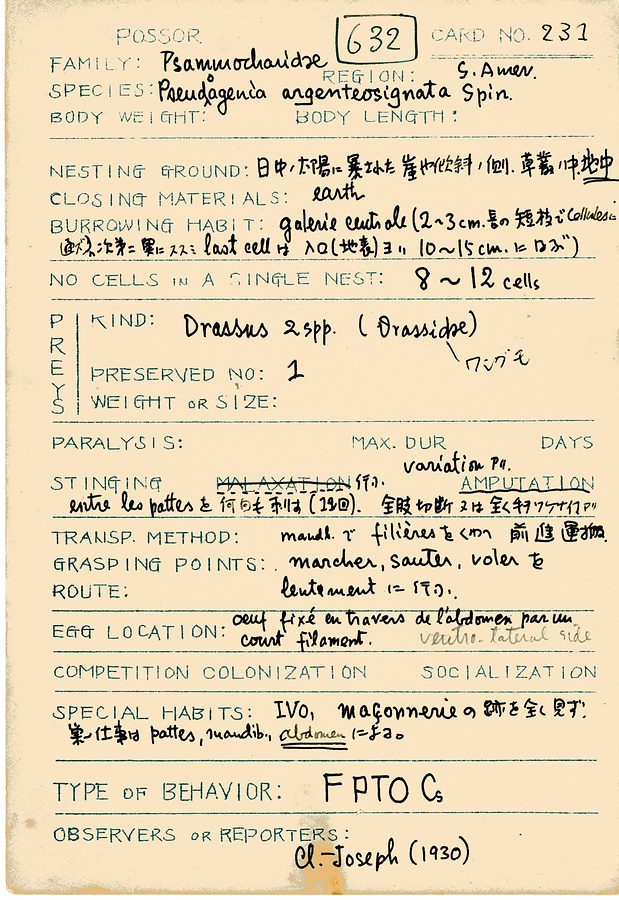 POSSOR 632 CARD NO. 231
FAMILY: Psammocharidae
REGION: S. Amer.
SPECIES: Pseudagenia argenteosignata Spin.
BODY WEIGHT: BODY LENGTH:
NESTING GROUND: 日中ノ太陽に暴された崖や傾斜ノ側. 草叢ノ中. 地中
CLOSING MATERIALS: earth
BURROWING HABIT: galerie centrale (2~3cm. 長の短枝で Cellules に
次第に奥にススミ last cell は 入口(地表)ヨリ 10~15cm. に およぶ)
NO CELLS IN A SINGLE NEST: 8 ~ 12 cells
PREYS
KIND: Drassus 2 spp. (Drassidae)
ワシグモ
PRESERVED NO: 1
WEIGHT OR SIZE:
PARALYSIS: MAX. DUR DAYS
variation アリ.
STINGING MALAXATION 行う. AMPUTATION
entre les pattes を 何回も刺す (12回). 全肢切断 又は全く切ラナイアリ
TRANSP. METHOD: mandb. で filières をくわへ 前進運搬.
GRASPING POINTS: marcher, sauter, voler を
ROUTE: lentement に行う.
oeuf fixé en travers de l'abdomen par un
EGG LOCATION: court filament. ventro-lateral side
COMPETITION COLONIZATION SOCIALIZATION
SPECIAL HABITS: IVO, maçonnerie の跡を全く見ず.
巣ノ仕事は pattes, mandib., abdomen による。
TYPE OF BEHAVIOR: FPTOCs
OBSERVERS OR REPORTERS:
Cl.-Joseph (1930)